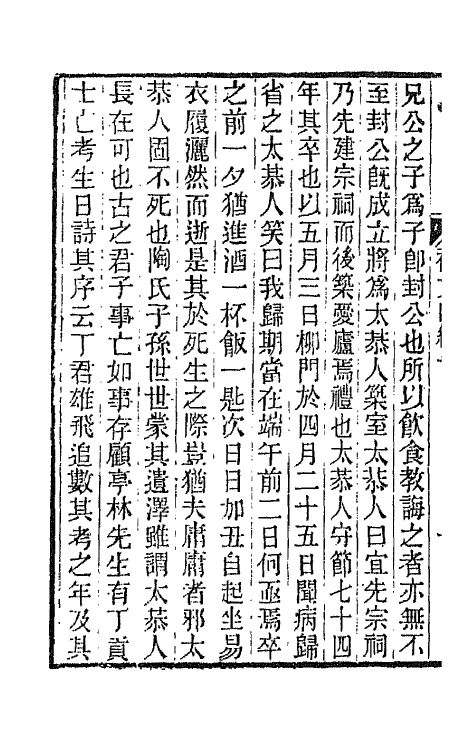 兄公之子爲子卽封公也所以飮食教誨之者亦無不
至封公旣成立將爲太恭人築室太恭人曰宜先宗祠
乃先建宗祠而後築憂廬焉禮也太恭人守節七十四
年其卒也以五月三日柳門於四月二十五日聞病歸
省之太恭人笑曰我歸期當在端午前二日何亟焉卒
之前一夕猶進酒一杯飯一匙次日日加丑自起坐易
衣履灑然而逝是其於死生之際豈猶夫庸庸者邪太
恭人固不死也陶氏子孫世世蒙其遺澤雖謂太恭人
長在可也古之君子事亡如事存顧亭林先生有丁貢
士亡考生日詩其序云丁君雄飛追數其考之年及其